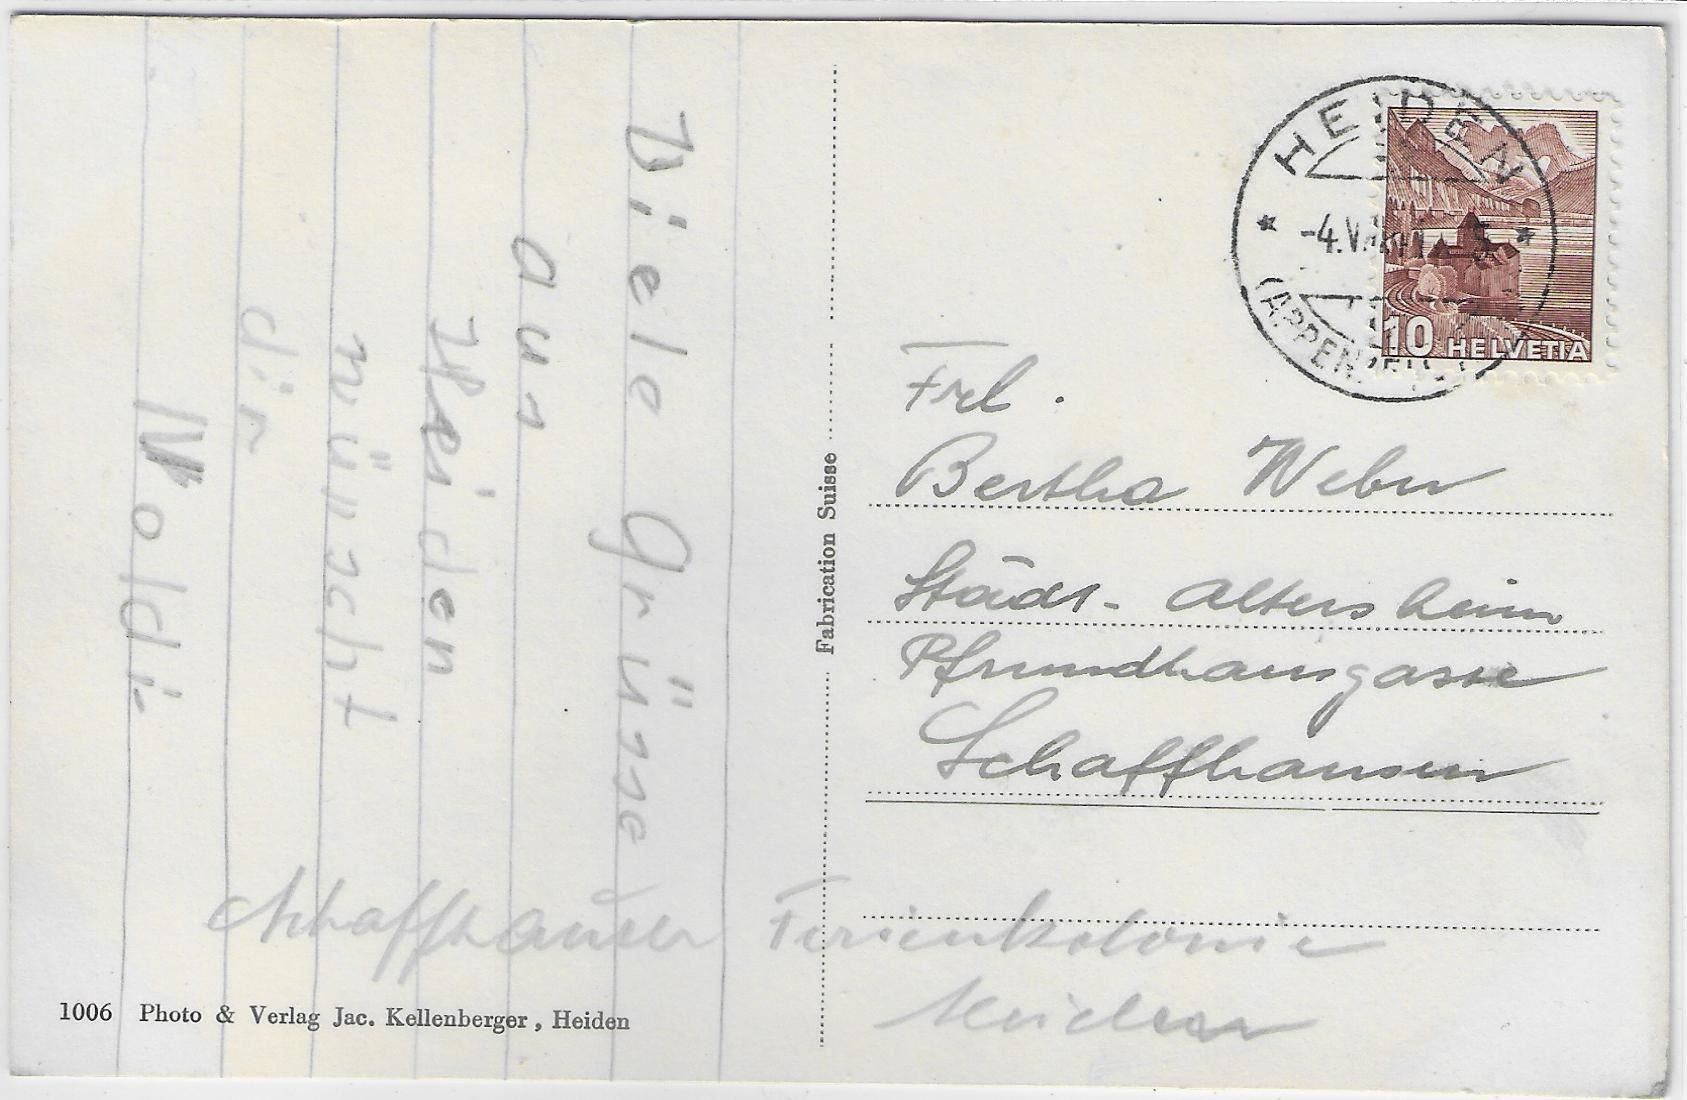 Viele Grüsse
aus
Heiden
wünscht
dir
Noldi.
HEIDEN
-4.V
(APPENZELL)
10 HELVETIA
Frl.
Bertha Weber
Städt. Altersheim
Pfrundhausgasse
Schaffhausen
Schaffhauser Ferienkolonie
Heiden
Fabrication Suisse
1006 Photo & Verlag Jac. Kellenberger, Heiden